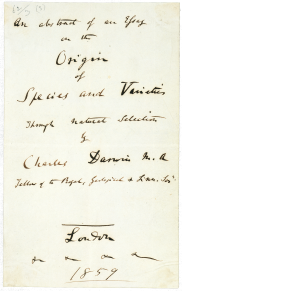 An abstract of an Essay
on the
Origin
of
Species and Varieties
Through natural Selection
by
Charles Darwin M.A
Fellow of the Royal, Geological & Linn. Socy
London
1859